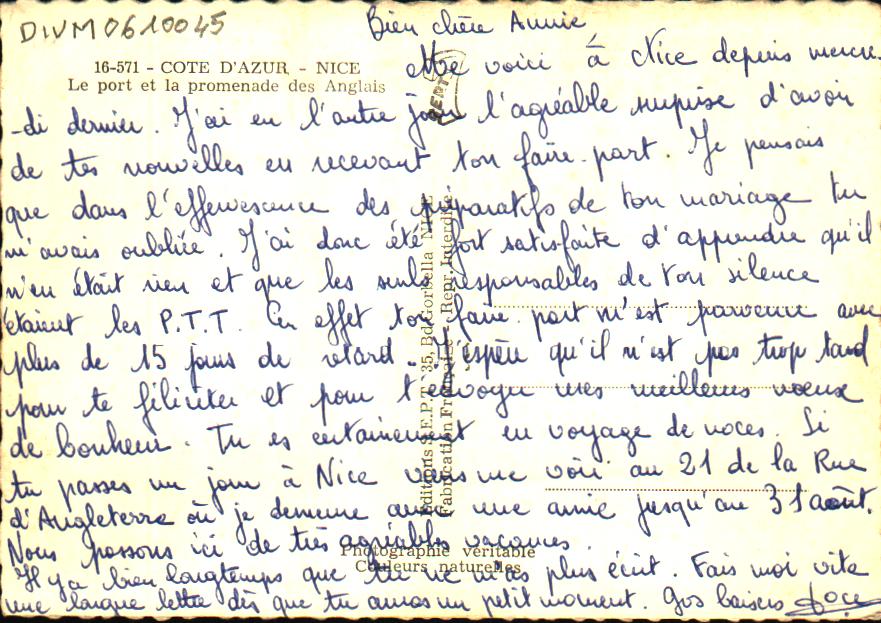 DIVM0610045
Bien chère Annie
16-571 - COTE D'AZUR - NICE
Le port et la promenade des Anglais
Me voici à Nice depuis mercre
-di dernier. J'ai eu l'autre jour l'agréable surprise d'avoir
de tes nouvelles en recevant ton faire-part. Je pensais
que dans l'effervescence des préparatifs de ton mariage tu
m'avais oubliée. J'ai donc été fort satisfaite d'apprendre qu'il
n'en était rien et que les seuls responsables de ton silence
étaient les P.T.T. En effet ton faire part m'est parvenu avec
plus de 15 jours de retard. J'espère qu'il n'est pas trop tard
pour te féliciter et pour t'envoyer mes meilleurs voeux
de bonheur. Tu es certainement en voyage de noces. Si
tu passes un jour à Nice viens me voir au 21 de la Rue
d'Angleterre où je demeure avec une amie jusqu'au 31 août.
Nous passons ici de très agréables vacances.
Il y a bien longtemps que tu ne m'as plus écrit. Fais moi vite
une longue lettre dès que tu auras un petit moment. Gros baisers
Editions S.E.P.T. 35, Bd Gorbella NICE
Fabrication Française - Repr. Interdite
Photographie véritable
Couleurs naturelles